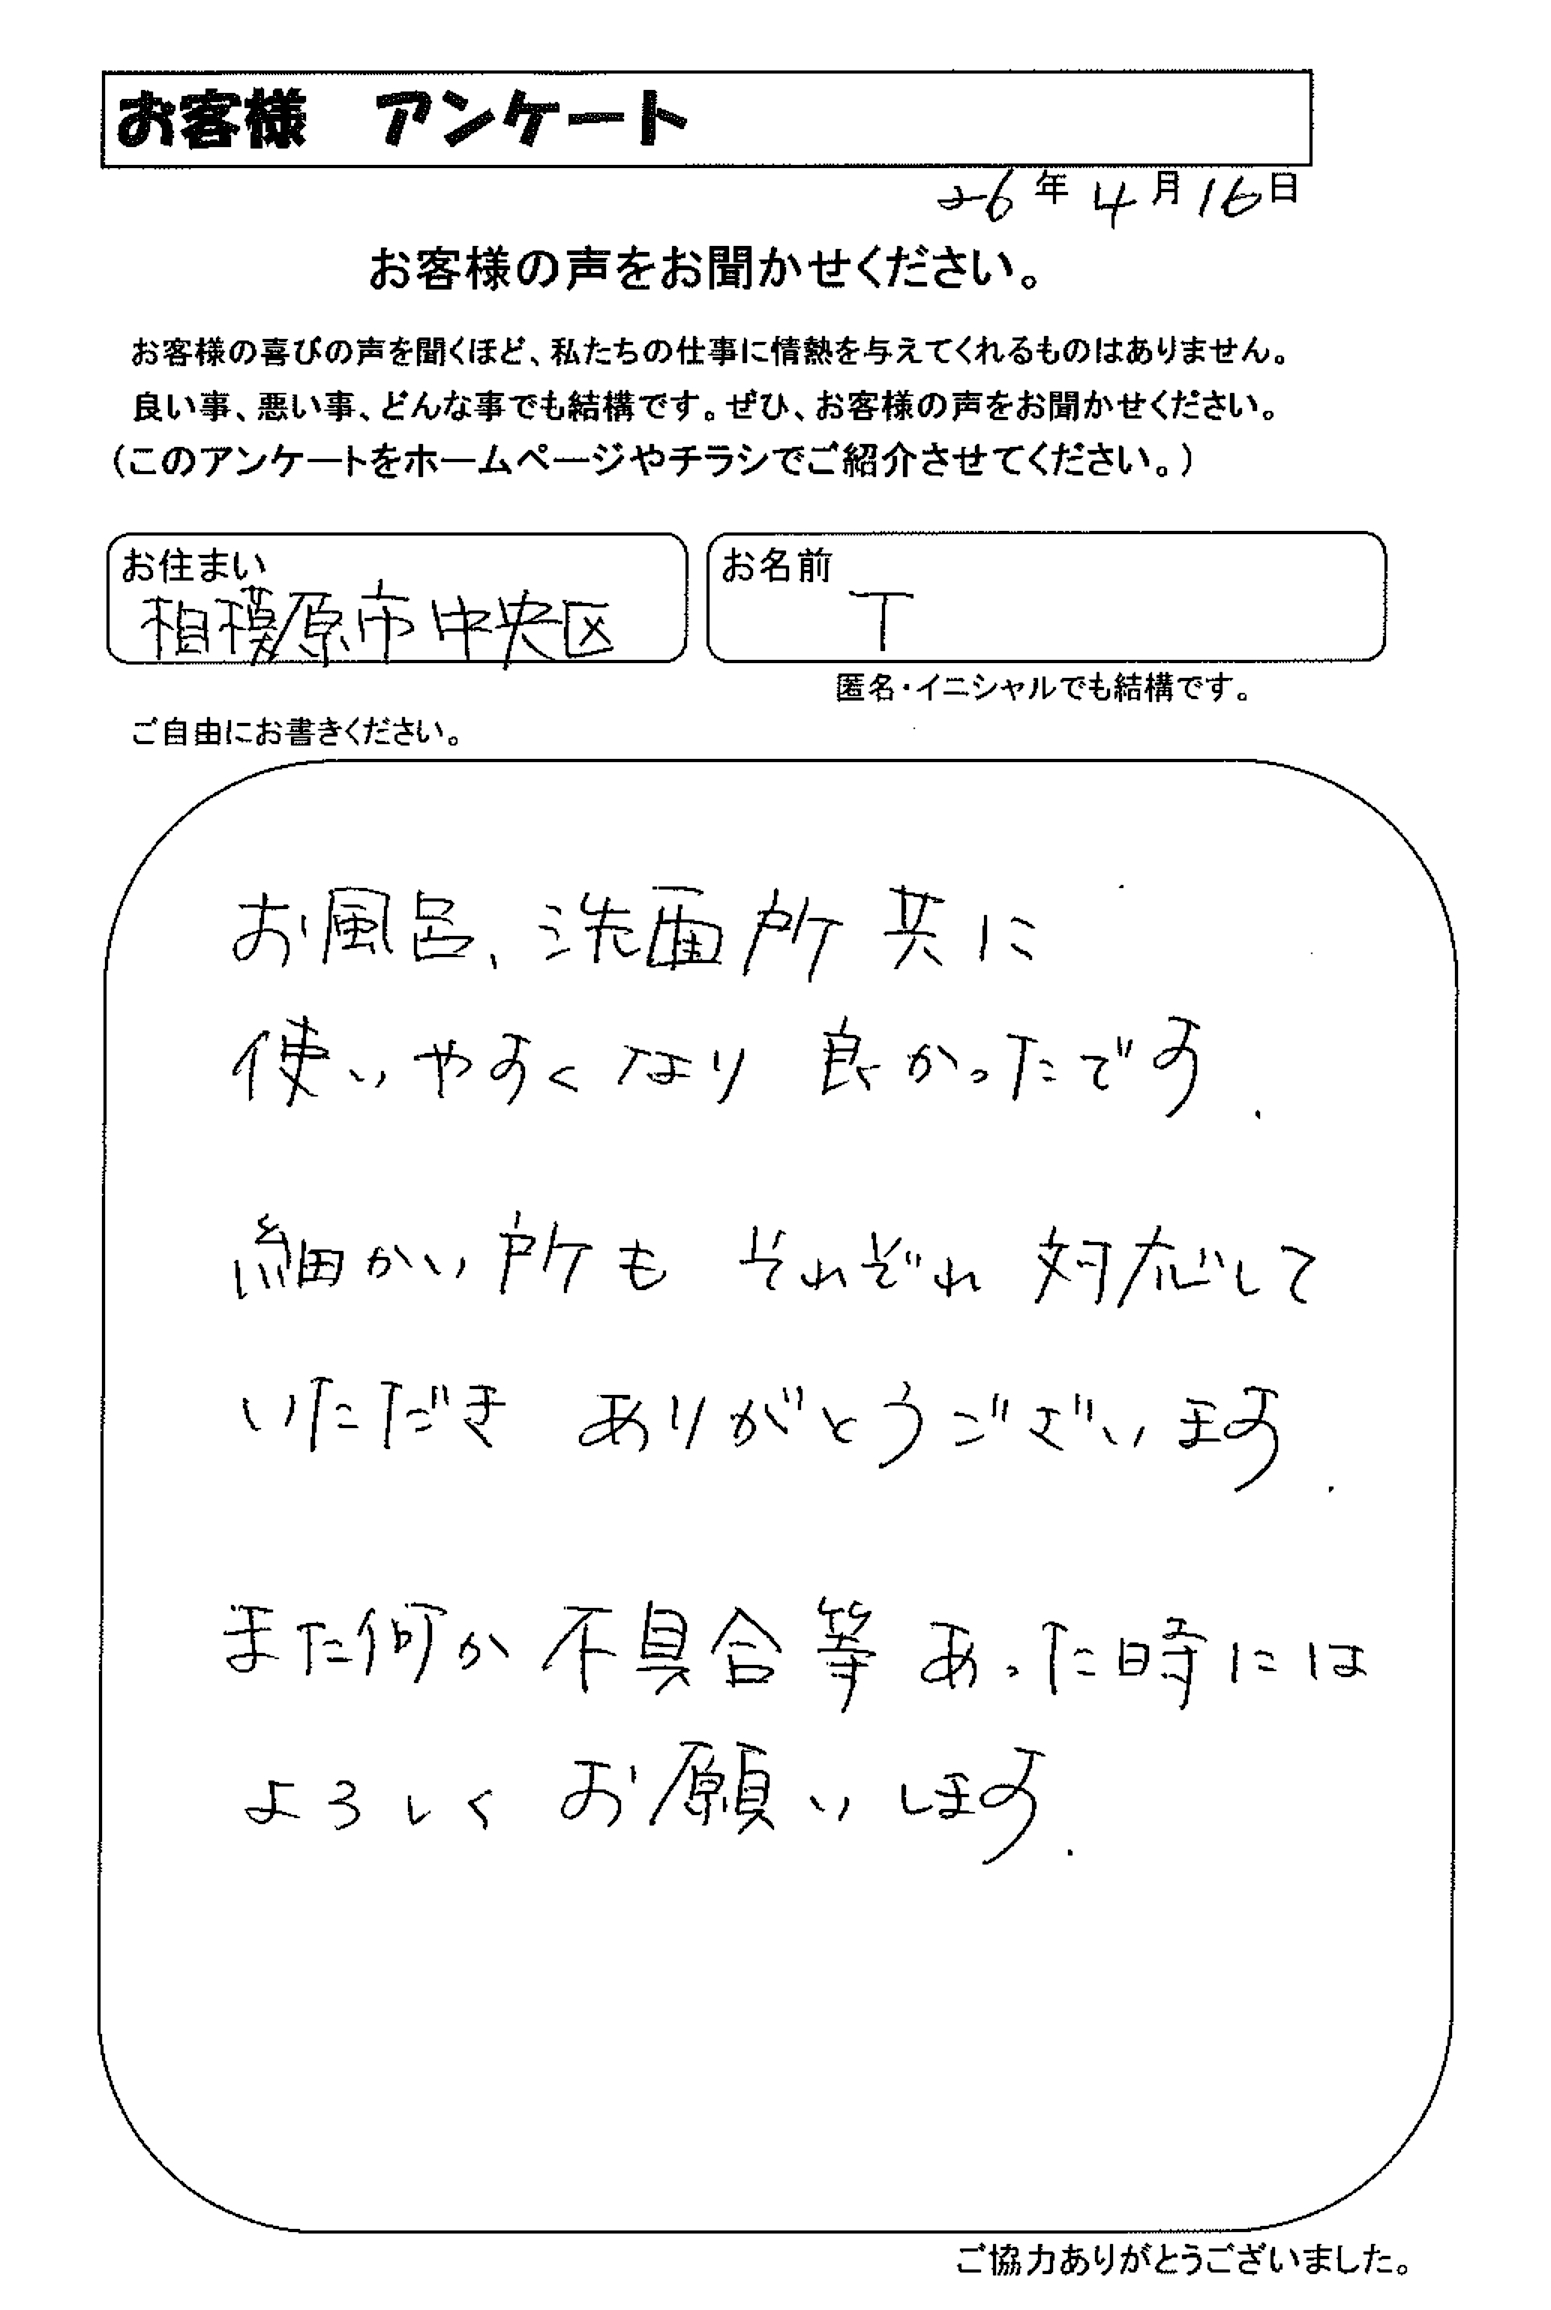 お客様　アンケート
26年4月16日
お客様の声をお聞かせください。
お客様の喜びの声を聞くほど、私たちの仕事に情熱を与えてくれるものはありません。
良い事、悪い事、どんな事でも結構です。ぜひ、お客様の声をお聞かせください。
（このアンケートをホームページやチラシでご紹介させてください。）
お住まい
相模原市中央区
お名前
T
匿名・イニシャルでも結構です。
ご自由にお書きください。
お風呂、洗面所共に
使いやすくなり 良かったです.
細かい所も それぞれ 対応して
いただき ありがとうございます.
また何か 不具合等 あった時には
よろしく お願いします.
ご協力ありがとうございました。